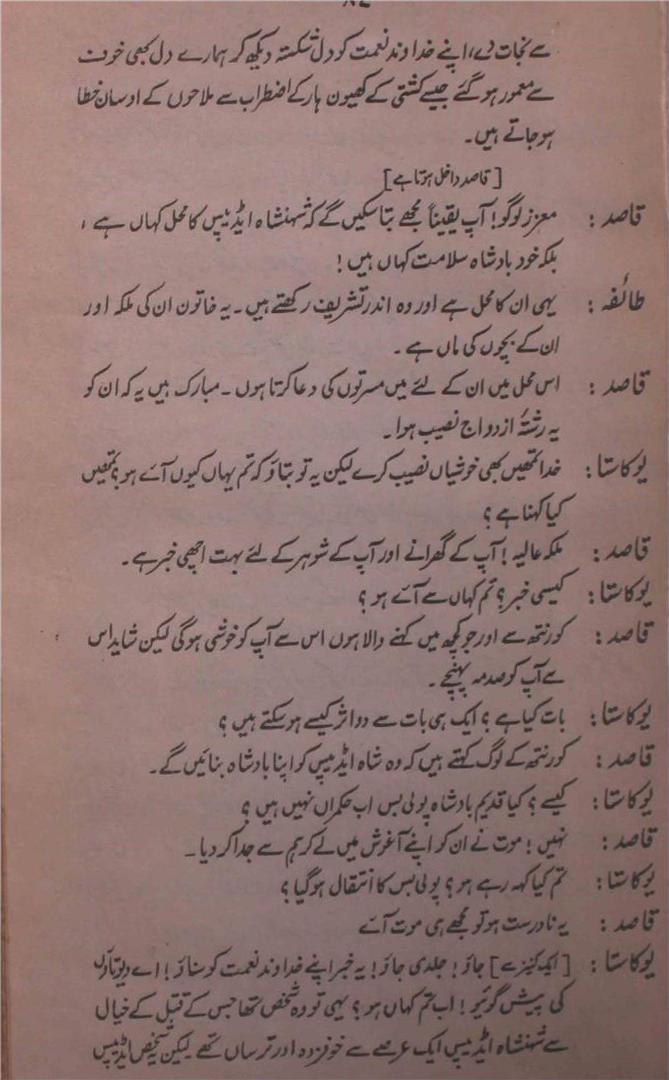 سے نجات دے، اپنے خداوند نعمت کو دل شکستہ دیکھ کر ہمارے دل بھی خوف
سے معمور ہو گئے جیسے کشتی کے کھیون ہار کے اضطراب سے ملاحوں کے اوسان خطا
ہو جاتے ہیں۔
[قاصد داخل ہوتا ہے]
قاصد : معزز لوگو! آپ یقیناً مجھے بتا سکیں گے کہ شہنشاہ ایڈیپس کا محل کہاں ہے ،
بلکہ خود بادشاہ سلامت کہاں ہیں !
طائفہ : یہی ان کا محل ہے اور وہ اندر تشریف رکھتے ہیں۔ یہ خاتون ان کی ملکہ اور
ان کے بچوں کی ماں ہے ۔
قاصد : اس محل میں ان کے لئے میں مسرتوں کی دعا کرتا ہوں ۔ مبارک ہیں یہ کہ ان کو
یہ رشتۂ ازدواج نصیب ہوا ۔
یوکاستا : خدا تمھیں بھی خوشیاں نصیب کرے لیکن یہ تو بتاؤ کہ تم یہاں کیوں آئے ہو ؟ تمھیں
کیا کہنا ہے ؟
قاصد : ملکہ عالیہ ! آپ کے گھرانے اور آپ کے شوہر کے لئے بہت اچھی خبر ہے ۔
یوکاستا : کیسی خبر ؟ تم کہاں سے آئے ہو ؟
قاصد : کورنتھ سے اور جو کچھ میں کہنے والا ہوں اس سے آپ کو خوشی ہوگی لیکن شاید اس
سے آپ کو صدمہ پہنچے ۔
یوکاستا : بات کیا ہے ؟ ایک ہی بات سے دو اثر کیسے ہو سکتے ہیں ؟
قاصد : کورنتھ کے لوگ کہتے ہیں کہ وہ شاہ ایڈیپس کو اپنا بادشاہ بنائیں گے ۔
یوکاستا : کیسے ؟ کیا قدیم بادشاہ پولی بس اب حکمراں نہیں ہیں ؟
قاصد : نہیں ! موت نے ان کو اپنے آغوش میں لے کر ہم سے جدا کر دیا ۔
یوکاستا : تم کیا کہہ رہے ہو ؟ پولی بس کا انتقال ہوگیا ؟
قاصد : یہ نادرست ہو تو مجھے ہی موت آئے
یوکاستا : [ایک کنیز سے] جاؤ ! جلدی جاؤ ! یہ خبر اپنے خداوند نعمت کو سناؤ ! اے دیوتاؤں
کی پیش گوئیو ! اب تم کہاں ہو ؟ یہی تو وہ شخص تھا جس کے قتل کے خیال
سے شہنشاہ ایڈیپس ایک عرصے سے خوفزدہ اور ترساں تھے لیکن یہ شخص ایڈیپس